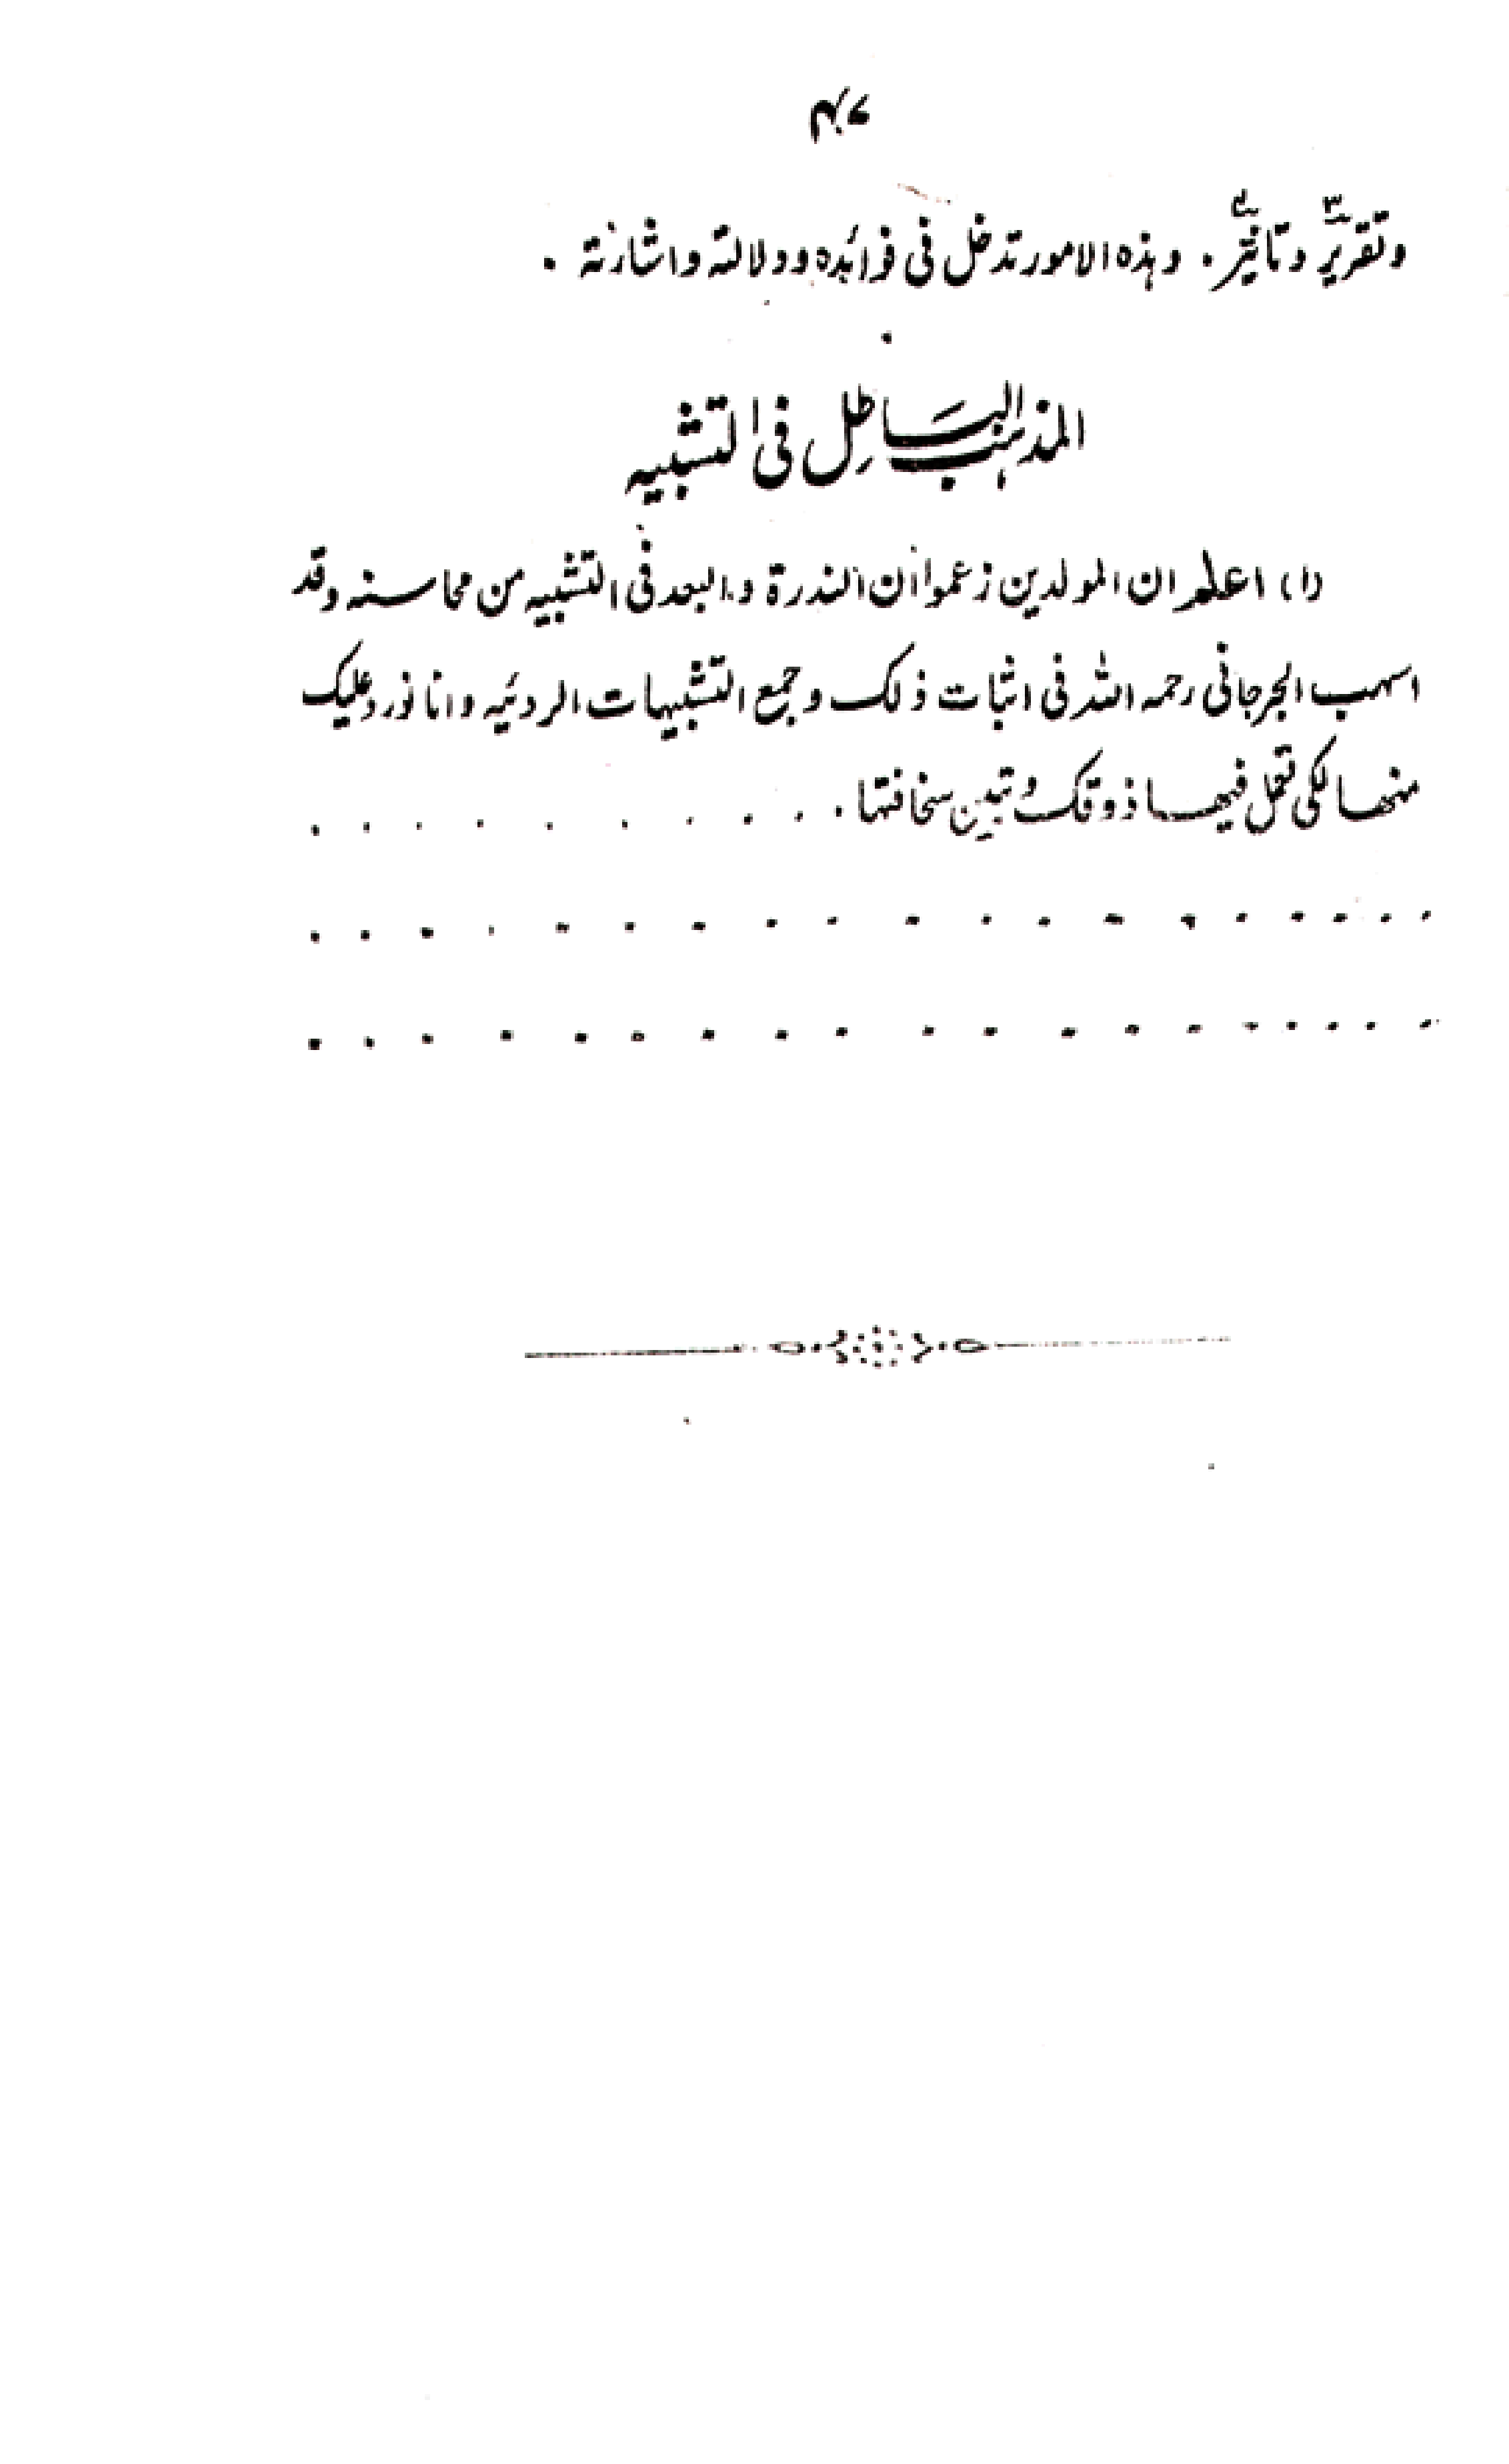 ۴۷
وتقریرٌ۳ وتاثیرٌ۴ . وہذہ الامور تدخل فی فوائدہ ودلالتہ واشارتہ .
المذہب الباطل فی التشبیہ
(۱) اعلم ان المولدین زعموا ان الندرة والبعد فی التشبیہ من محاسنہ وقد
اسہب الجرجانی رحمہ اللہ فی اثبات ذلک وجمع التشبیہات الردئیہ وانا نورد علیک
منہا لکی تعمل فیہا ذوقک وتبین سخافتہا . . . . . . . . . . .
. . . . . . . . . . . . . . . . . . .
. . . . . . . . . . . . . . . . . . .